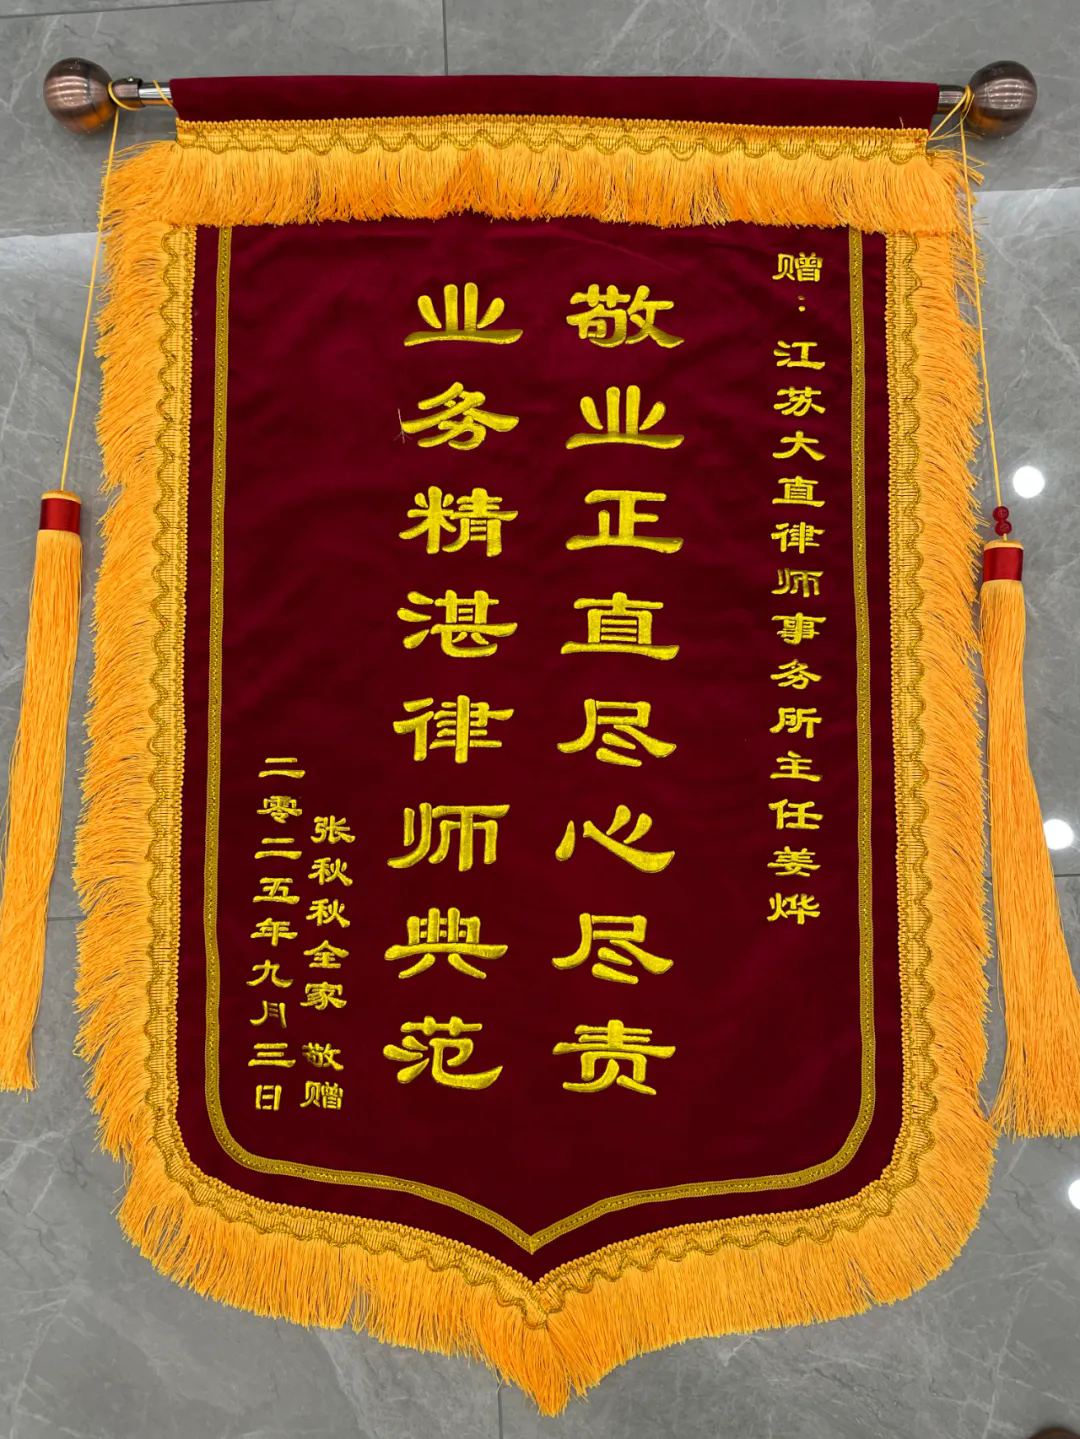 赠：江苏大直律师事务所主任姜烨
敬业正直尽心尽责
业务精湛律师典范
张秋秋全家 敬赠
二零二五年九月三日